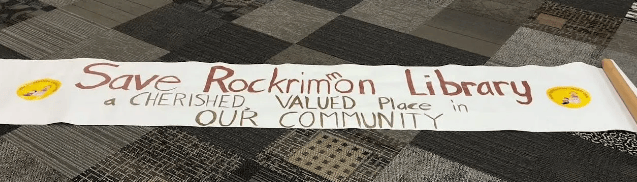 Save Rockrimmon Library
a CHERISHED, VALUED Place in
OUR COMMUNITY